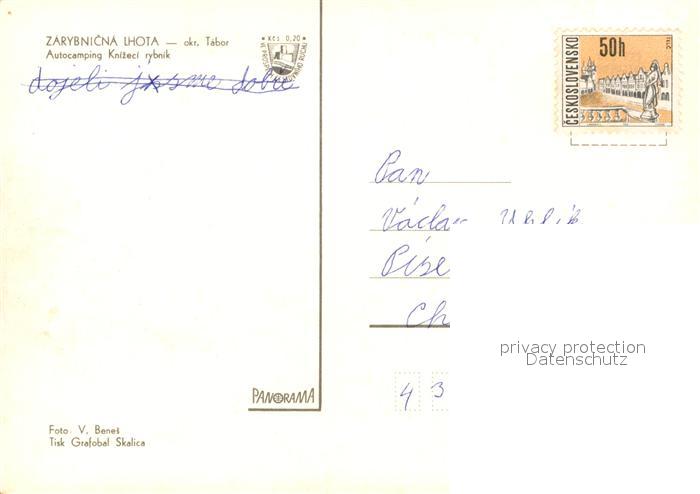 ZÁRYBNIČNÁ LHOTA — okr. Tábor
Autocamping Knížecí rybník
Kčs 0,20
dojeli jsme dobře
ČESKOSLOVENSKO
50h
TELČ
Pan
Václav
Píse
Ch
4 3
privacy protection
Datenschutz
PANORAMA
Foto V. Beneš
Tisk Grafobal Skalica